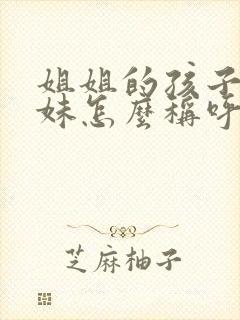 姐姐的孩子
妹怎麼稱呼
芝麻柚子